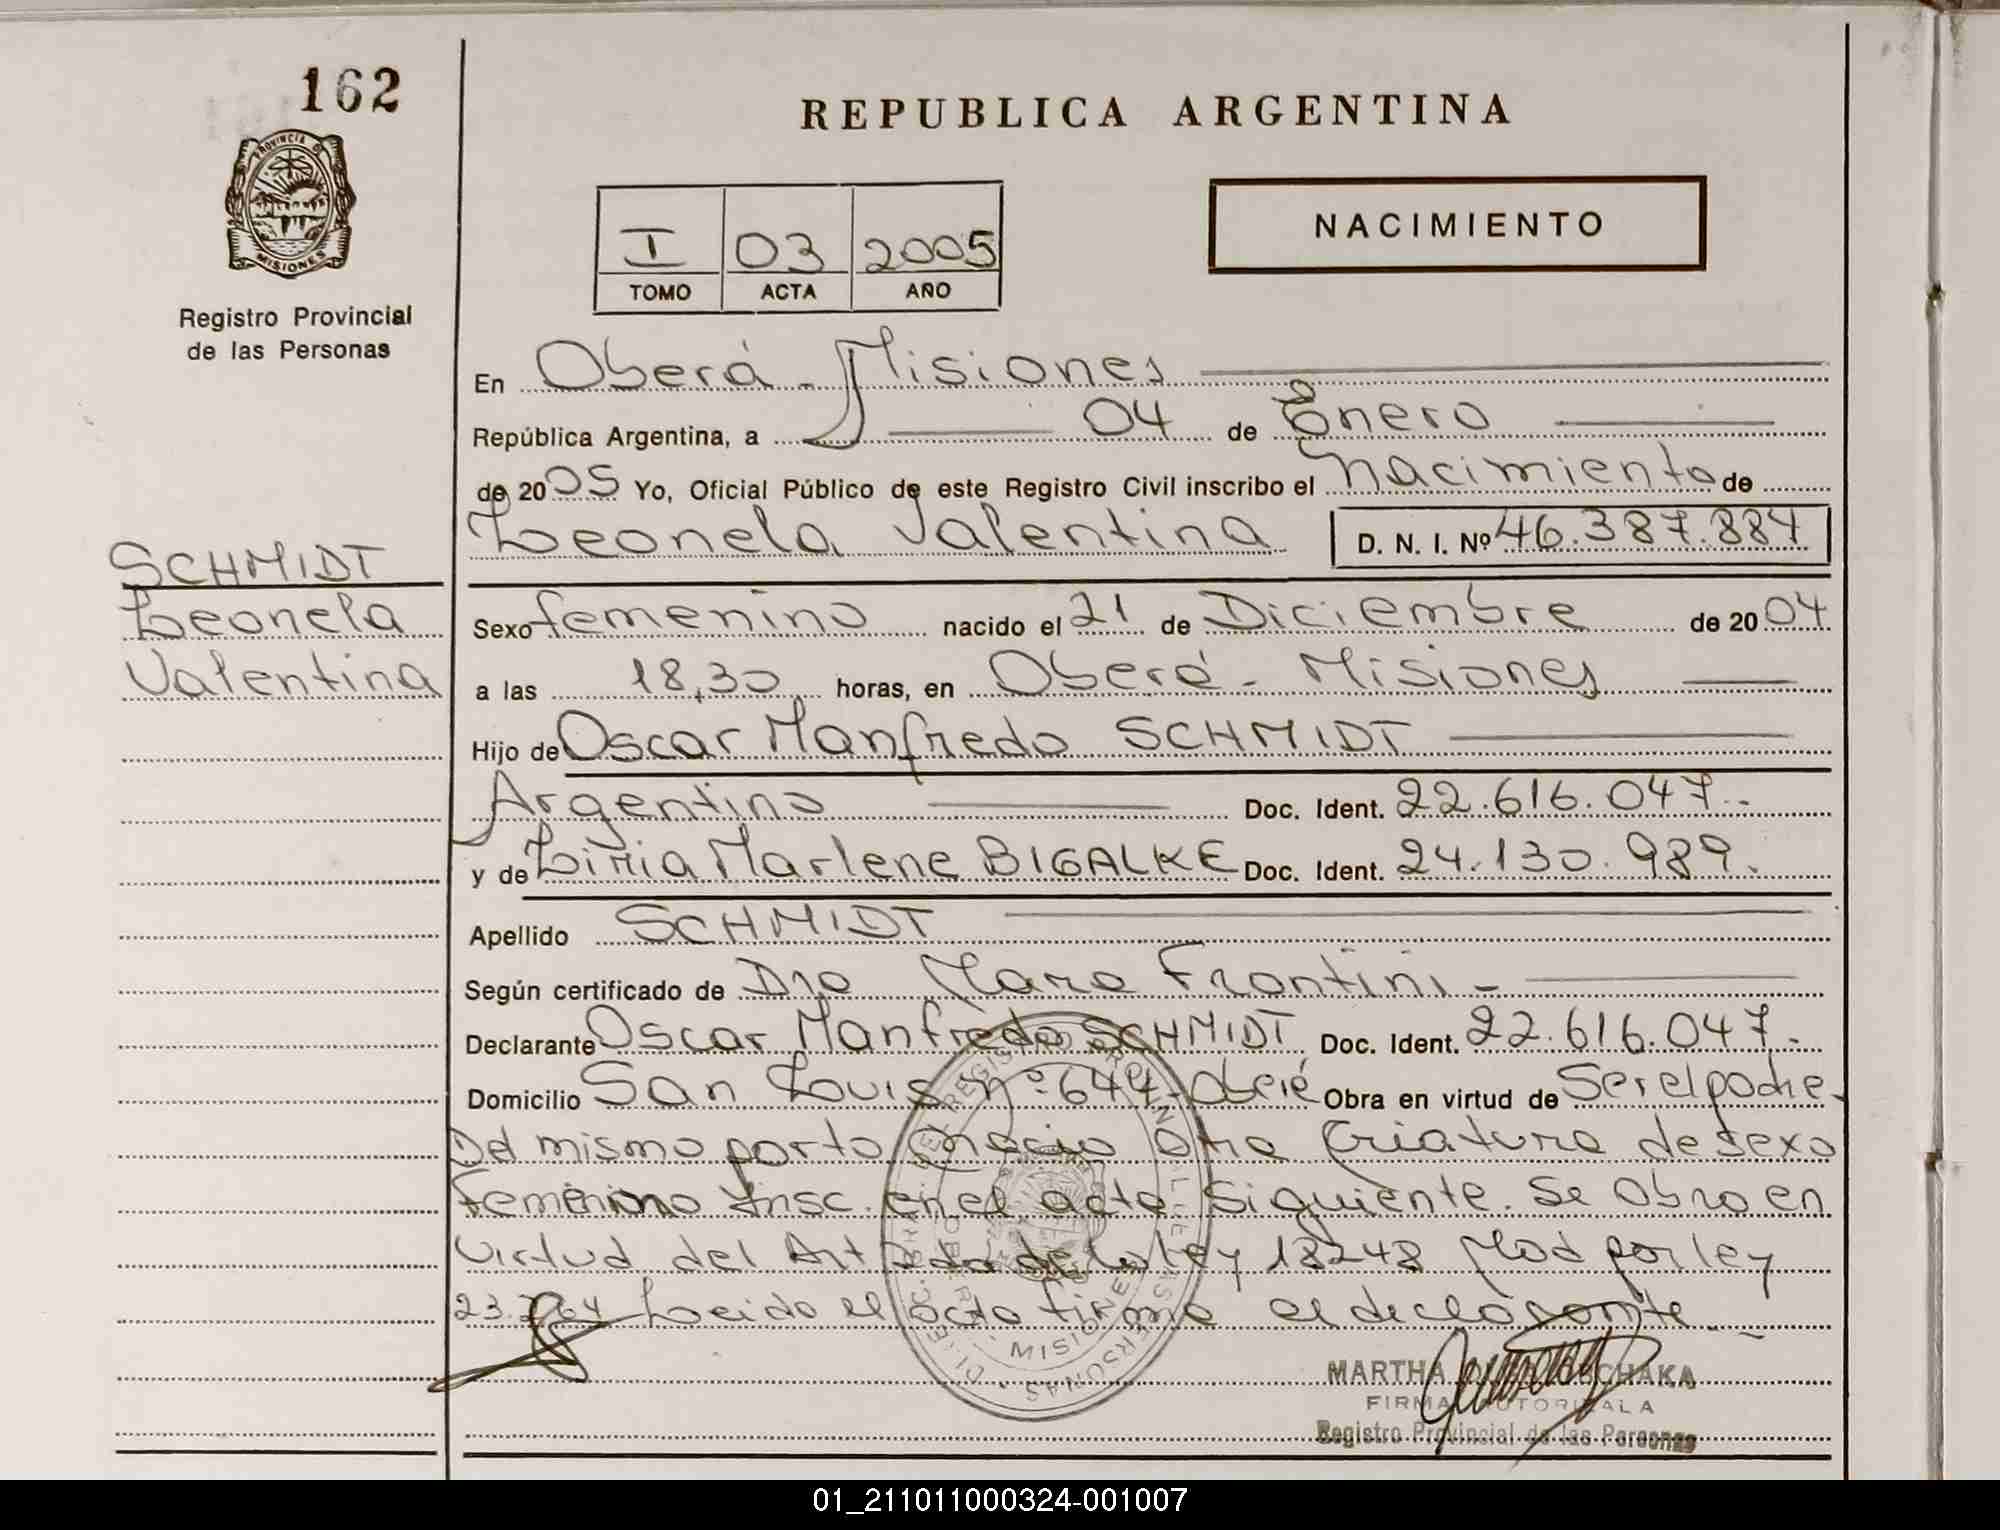 162
PROVINCIA DE
MISIONES
Registro Provincial
de las Personas
REPUBLICA ARGENTINA
I 03 2005
TOMO ACTA AÑO
NACIMIENTO
En Oberá - Misiones
República Argentina, a 04 de Enero
de 2005 Yo, Oficial Público de este Registro Civil inscribo el nacimiento de
Leonela Valentina D. N. I. Nº 46.387.884
SCHMIDT
Leonela
Valentina
Sexo femenino nacido el 21 de Diciembre de 2004
a las 18,30 horas, en Oberá - Misiones
Hijo de Oscar Manfredo SCHMIDT
Argentino Doc. Ident. 22.616.047.-
y de Liria Marlene BIGALKE Doc. Ident. 24.130.989.
Apellido SCHMIDT
Según certificado de Dra Mara Frontini -
Declarante Oscar Manfredo SCHMIDT Doc. Ident. 22.616.047.-
Domicilio San Louis nº 644 - Oberá Obra en virtud de Ser el padre.
Del mismo parto nacio otra criatura de sexo
femenino insc. en el acta siguiente. Se obra en
virtud del Art de la ley 18248 Mod por ley
23.264 Leida el acta firma el declarante.
MARTHA
FIRMA AUTORIZADA
Registro Provincial de las Personas
01_211011000324-001007